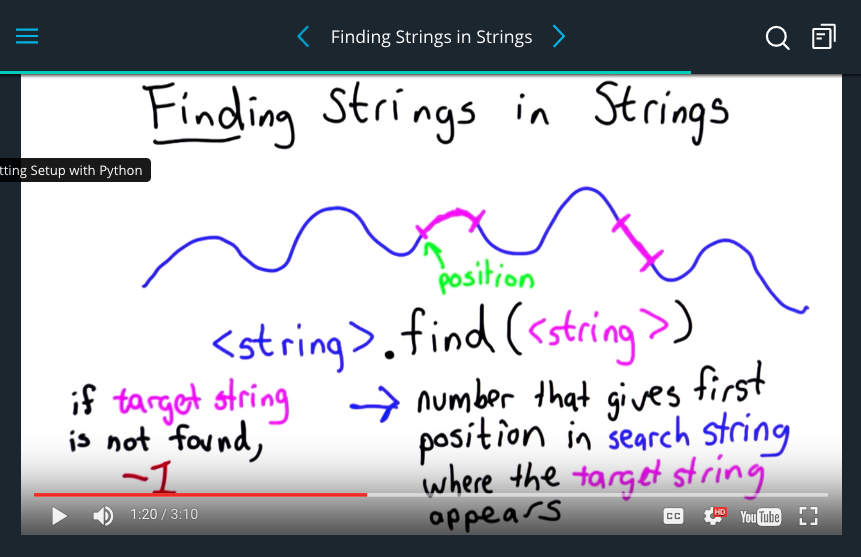 Finding Strings in Strings
Finding Strings in Strings
tting Setup with Python
position
<string>.find(<string>)
if target string
is not found,
-1
→ number that gives first
position in search string
where the target string
appears
1:20 / 3:10
CC
HD
YouTube